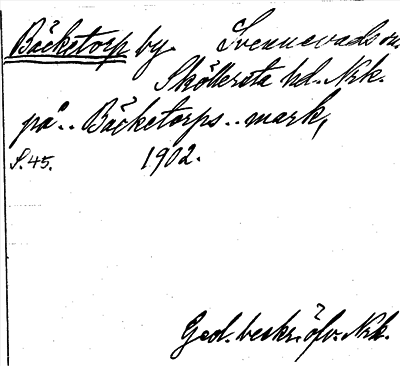 Bäcketorp by. Svennevads sn.
Sköllersta hd. Nrk.
på.. Bäcketorps.. mark,
S. 45. 1902.
Ged. beskr. öfv. Nrk.